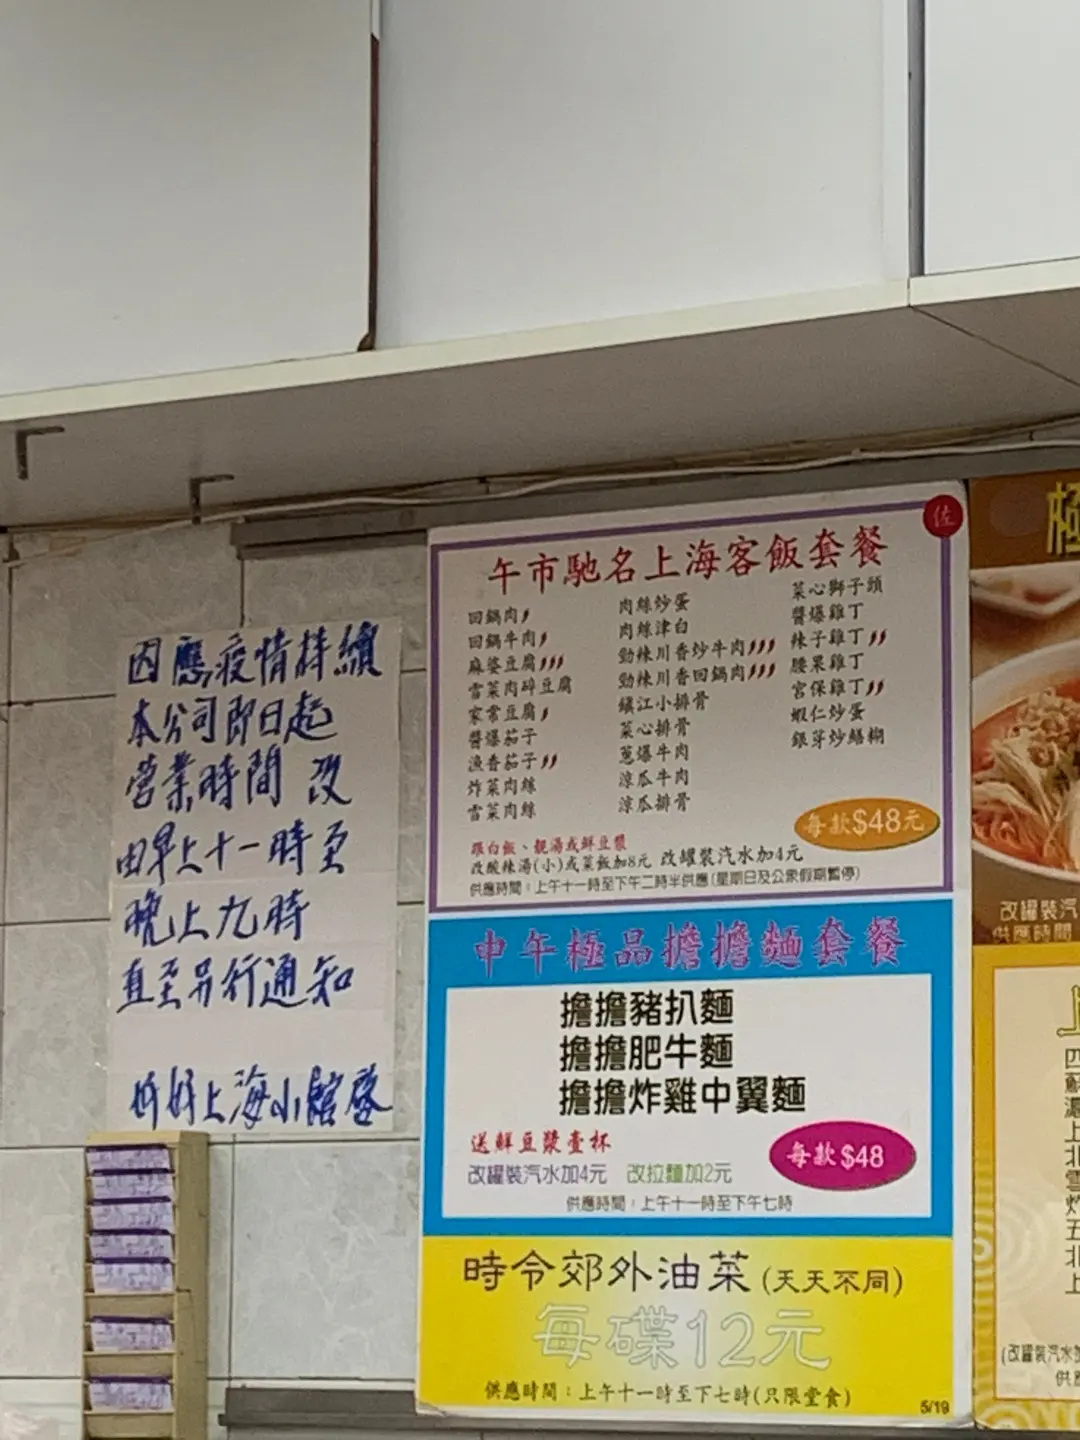 因應疫情持續
本公司即日起
營業時間 改
由早上十一時至
晚上九時
直至另行通知
好好上海小館啓
佐
午市馳名上海客飯套餐
回鍋肉
回鍋牛肉
麻婆豆腐
雪菜肉碎豆腐
家常豆腐
醬爆茄子
漁香茄子
炸菜肉絲
雪菜肉絲
肉絲炒蛋
肉絲津白
勁辣川香炒牛肉
勁辣川香回鍋肉
鎮江小排骨
菜心排骨
蔥爆牛肉
涼瓜牛肉
涼瓜排骨
菜心獅子頭
醬爆雞丁
辣子雞丁
腰果雞丁
宮保雞丁
蝦仁炒蛋
銀芽炒鱔糊
每款$48元
跟白飯、靚湯或鮮豆漿
改酸辣湯(小)或菜飯加8元 改罐裝汽水加4元
供應時間：上午十一時至下午二時半供應(星期日及公眾假期暫停)
中午極品擔擔麵套餐
擔擔豬扒麵
擔擔肥牛麵
擔擔炸雞中翼麵
送鮮豆漿壹杯
每款$48
改罐裝汽水加4元 改拉麵加2元
供應時間：上午十一時至下午七時
時令郊外油菜(天天不同)
每碟12元
供應時間：上午十一時至下七時(只限堂食)
5/19
極
改罐裝汽
供應時間
上
四
滬
上
北
雪
炸
五
北
上
(改罐裝汽水
供